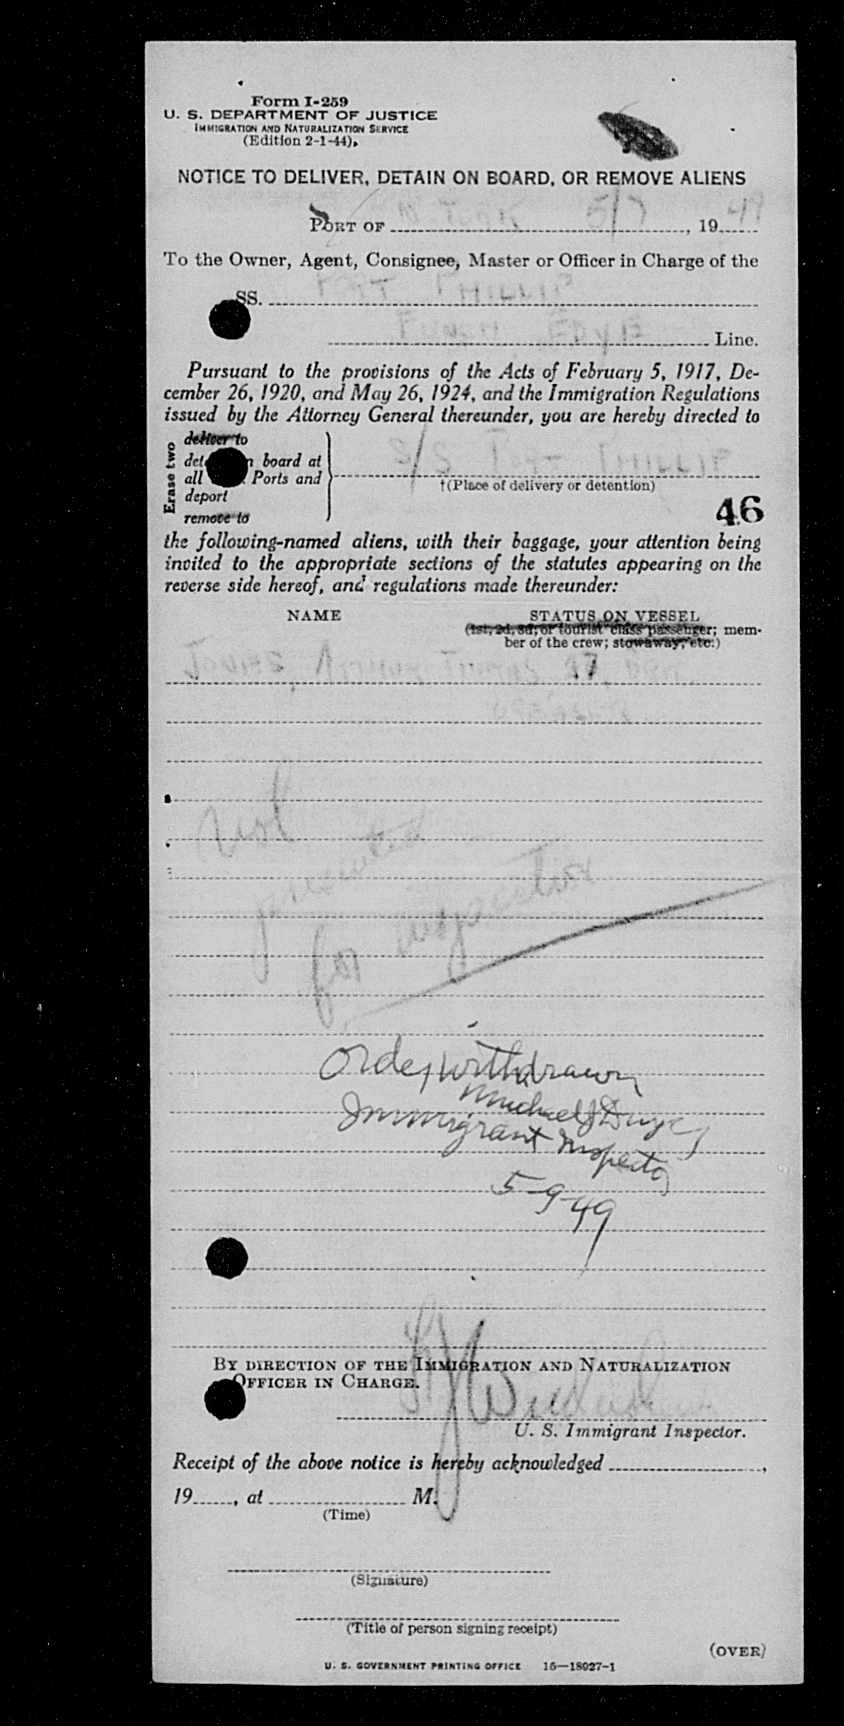 Form I-259
U. S. DEPARTMENT OF JUSTICE
IMMIGRATION AND NATURALIZATION SERVICE
(Edition 2-1-44)
NOTICE TO DELIVER, DETAIN ON BOARD, OR REMOVE ALIENS
PORT OF N. YORK 5/7, 1949
To the Owner, Agent, Consignee, Master or Officer in Charge of the
SS. PORT PHILLIP
FUNCH EDYE Line.
Pursuant to the provisions of the Acts of February 5, 1917, De-
cember 26, 1920, and May 26, 1924, and the Immigration Regulations
issued by the Attorney General thereunder, you are hereby directed to
Erase two
deliver to
board at
all Ports and
deport
remove to
S/S PORT PHILLIP
†(Place of delivery or detention)
46
the following-named aliens, with their baggage, your attention being
invited to the appropriate sections of the statutes appearing on the
reverse side hereof, and regulations made thereunder:
NAME STATUS ON VESSEL
(1st, 2d, 3d, or tourist class passenger; mem-
ber of the crew; stowaway, etc.)
JONES,
not
presented
for inspection
Order withdrawn
Michael J
Immigrant Inspector
5-9-49
BY DIRECTION OF THE IMMIGRATION AND NATURALIZATION
OFFICER IN CHARGE.
U. S. Immigrant Inspector.
Receipt of the above notice is hereby acknowledged ,
19 , at M.
(Time)
(Signature)
(Title of person signing receipt)
(OVER)
U. S. GOVERNMENT PRINTING OFFICE 16—18027-1